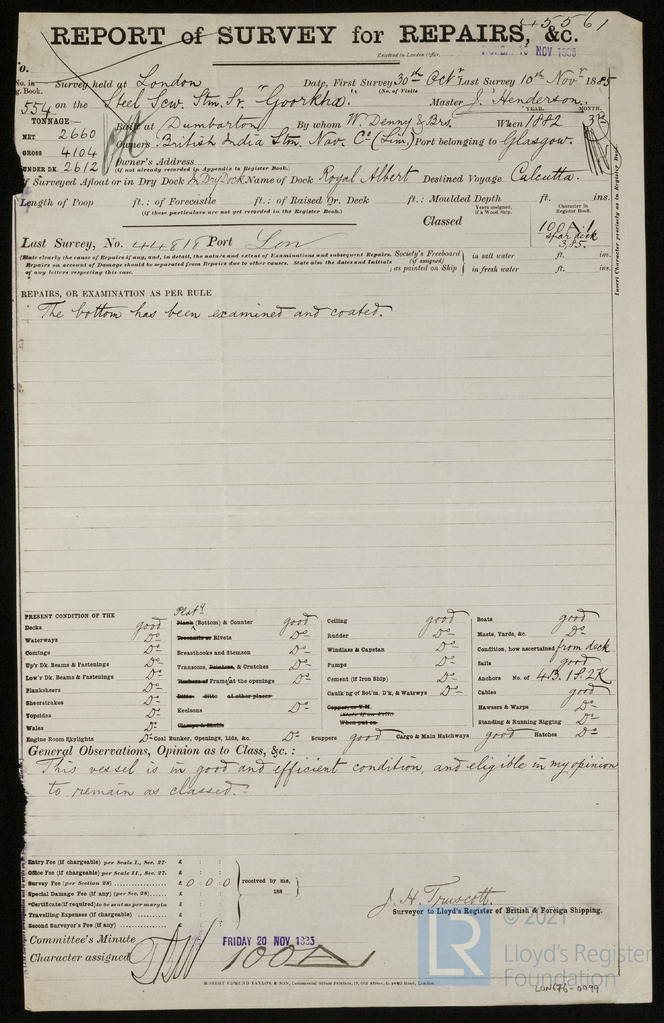 45561
REPORT of SURVEY for REPAIRS, &c.
Received in London Office, MONDAY 16 NOV 1885
No. in Survey held at London Date, First Survey 30th Octr Last Survey 10th Novr 1885
g. Book. (No. of Visits
554 on the Steel Scw. Stm. Sr. "Goorkha." Master J. Henderson.
TONNAGE:— Built at Dumbarton By whom W. Denny & Brs. When 1882 3
YEAR. MONTH.
NET 2660
GROSS 4104 Owners British India Stm. Nav. Co (Lim) Port belonging to Glasgow.
UNDER DK. 2612 Owner's Address
(if not already recorded in Appendix to Register Book.)
If Surveyed Afloat or in Dry Dock In Dry Dock Name of Dock Royal Albert Destined Voyage Calcutta.
Length of Poop ft.: of Forecastle ft.: of Raised Qr. Deck ft.: Moulded Depth ft. ins.
(if these particulars are not yet recorded in the Register Book.)
Years assigned, if a Wood Ship. Character in Register Book.
Classed 100A1
spar deck
3,85.
Last Survey, No. 44818 Port Lon
(State clearly the cause of Repairs if any, and, in detail, the nature and extent of Examinations and subsequent Repairs.
Repairs on account of Damage should be separated from Repairs due to other causes. State also the dates and Initials
of any letters respecting this case.
Society's Freeboard (if assigned) as painted on Ship
in salt water ft. ins.
in fresh water ft. ins.
Insert Character precisely as in Register Book.
REPAIRS, OR EXAMINATION AS PER RULE
The bottom has been examined and coated.
PRESENT CONDITION OF THE
Decks good
Waterways Do
Comings Do
Up'r Dk. Beams & Fastenings Do
Low'r Dk. Beams & Fastenings Do
Planksheers Do
Sheerstrakes Do
Topsides Do
Wales Do
Engine Room Skylights Do
Platg
Plank (Bottom) & Counter good
Treenails or Rivets Do
Breasthooks and Stemson Do
Transoms, Pointers, & Crutches Do
Timbers of Frame at the openings Do
Ditto ditto at other places
Keelsons Do
Clamps & Shelfs
Coal Bunker, Openings, Lids, &c. Do
Ceiling good
Rudder Do
Windlass & Capstan Do
Pumps Do
Cement (if Iron Ship) Do
Caulk'ng of Bot'm, D'k, & Watrwys Do
Copper or Y.M.
(State if on Felt.
When put on
Scuppers good Cargo & Main Hatchways good Hatches Do
Boats good
Masts, Yards, &c. Do
Condition, how ascertained from deck
Sails good
Anchors No. of 4B. 1S. 2K
Cables good
Hawsers & Warps Do
Standing & Running Rigging Do
General Observations, Opinion as to Class, &c.:
This vessel is in good and efficient condition, and eligible in my opinion
to remain as classed.
Entry Fee (if chargeable) per Scale I., Sec. 27- £ : :
Office Fee (if chargeable) per Scale II., Sec. 27. £ : :
Survey Fee (per Section 28) £ 0 : 0 : 0
Special Damage Fee (if any) (per Sec. 28) £ : :
*Certificate (if required) to be sent as per margin £ : :
Travelling Expenses (if chargeable) £ : :
Second Surveyor's Fee (if any) £ : :
received by me,
188
J. H. Truscott.
Surveyor to Lloyd's Register of British & Foreign Shipping.
Committee's Minute FRIDAY 20 NOV 1885
Character assigned 100A1
ROBERT EDMUND TAYLOR & SON, Commercial Steam Printers, 19, Old Street, Goswell Road, London.
© 2021
LR
Lloyd's Register
Foundation
LON676-0099